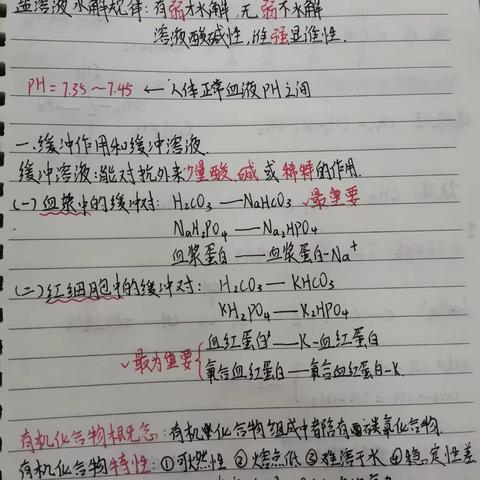 盐溶液水解规律:有弱才水解,无弱不水解
溶液酸碱性,谁强显谁性.
PH=7.35~7.45 ← 人体正常血液PH之间
一.缓冲作用和缓冲溶液
缓冲溶液:能对抗外来少量酸、碱或稀释的作用.
(一)血浆中的缓冲对: H₂CO₃ — NaHCO₃ 最重要
NaH₂PO₄ — Na₂HPO₄
血浆蛋白 — 血浆蛋白-Na⁺
(二)红细胞中的缓冲对: H₂CO₃ — KHCO₃
KH₂PO₄ — K₂HPO₄
血红蛋白 — K-血红蛋白
最为重要
氧合血红蛋白 — 氧合血红蛋白-K.
有机化合物概念:有机化合物组成中都含有碳氢化合物.
有机化合物特性:①可燃性 ②熔点低 ③难溶于水 ④稳定性差